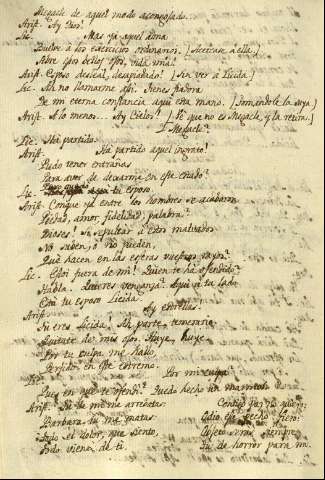 Megacle de aquel modo acongojado.
Arist. Ay Dios!
Lic. Mas ya aquel alma
Vuelve a los ejercicios ordinarios. [Acercase à ella.]
Abre esos bellos ojos, vida mia.
Arist. Esposo desleal, desapiadado! [Sin ver à Licida.]
Lic. Ah no llamarme asi. Tienes
De mi eterna constancia aqui una mano. [Tomandole la suya]
Arist. A lo menos... Ay Cielos! [Vè que no es Megacle, y la retira.]
Megacle?
Lic. Ha partido.
Arist. Ha partido aquel ingrato?
Pudo tener entrañas
Para de dexarme en este estado?
Lic. tu esposo.
Arist. Conque ya entre los hombres se acabaron
Piedad, amor, fidelidad, palabra?
Dioses! Si sepultar à estos malvados
No saben, ò no pueden,
Què hacen en las esferas vuestros rayos?
Lic. Estoi fuera de mi! Quien te ha ofendido?
Habla. Quieres venganza? Aqui a tu lado
Està tu esposo Licida.
Arist. Ay estrellas!
Tu eres Licida! Ah parte, temerario
Quitate de mis ojos. Huye, huye.
Por tu culpa me hallo
Perfido en este extremo.
Lic. Por mi culpa
Pues en que te ofendi? Quedo hecho un marmol.
Arist. Tu de mi à mi me arrebatas.
Barbaro, tu me matas.
Todo el dolor, que siento,
Todo viene de ti.
Contigo
Odio este pecho fiero:
Objeto eras siempre
Tu de horror para mi.